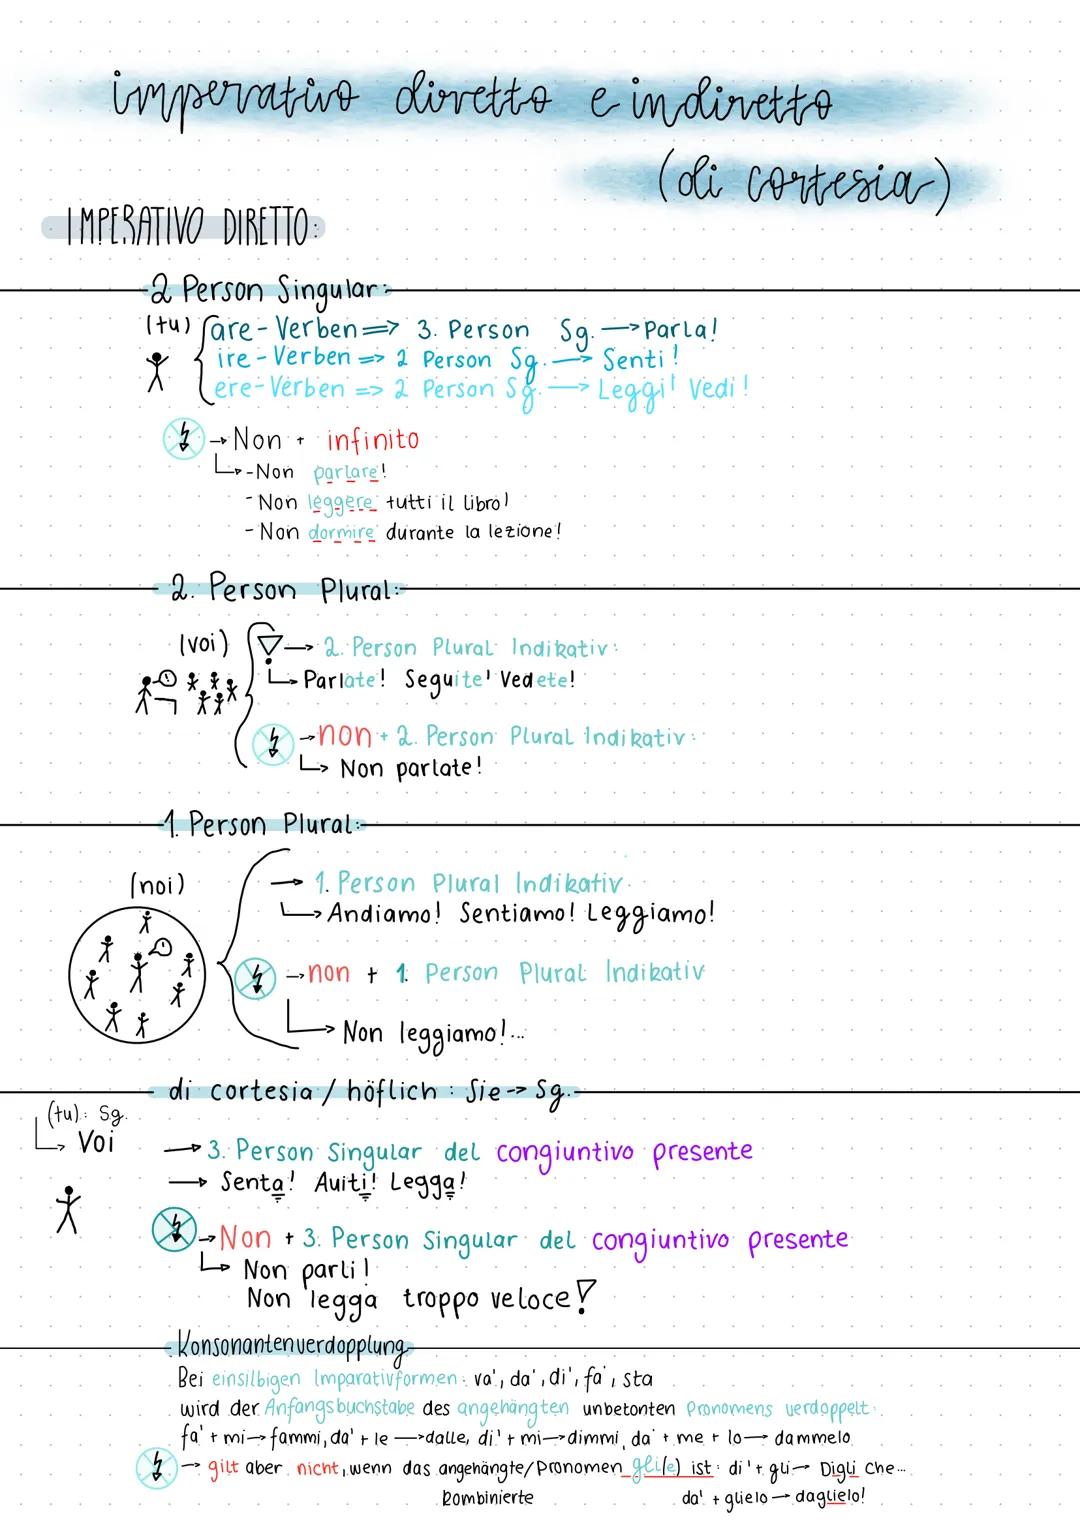 imperativo diretto e indiretto
(di cortesia)
IMPERATIVO DIRETTO:
2 Person Singular:
(tu) are-Verben => 3. Person Sg. → Parla!
ire-Verben => 2 Person Sg. → Senti!
ere-Verben => 2 Person Sg. → Leggi! Vedi!
→ Non + infinito
↳ - Non parlare!
- Non leggere tutti il libro!
- Non dormire durante la lezione!
2. Person Plural:
(voi) → 2. Person Plural Indikativ:
↳ Parlate! Seguite! Vedete!
→ non + 2. Person Plural Indikativ:
↳ Non parlate!
1. Person Plural:
(noi) → 1. Person Plural Indikativ
↳ Andiamo! Sentiamo! Leggiamo!
→ non + 1. Person Plural Indikativ
↳ Non leggiamo!...
di cortesia / höflich: Sie → Sg.
(tu): Sg.
↳ Voi
→ 3. Person Singular del congiuntivo presente
→ Senta! Auiti! Legga!
→ Non + 3. Person Singular del congiuntivo presente
↳ Non parli!
Non legga troppo veloce!
Konsonantenverdopplung
Bei einsilbigen Imparativformen: va', da', di', fa', sta
wird der Anfangsbuchstabe des angehängten unbetonten Pronomens verdoppelt:
fa' + mi → fammi, da' + le → dalle, di' + mi → dimmi, da' + me + lo → dammelo
→ gilt aber nicht, wenn das angehängte/Pronomen gli(e) ist: di' + gli → Digli che...
kombinierte da' + glielo → daglielo!